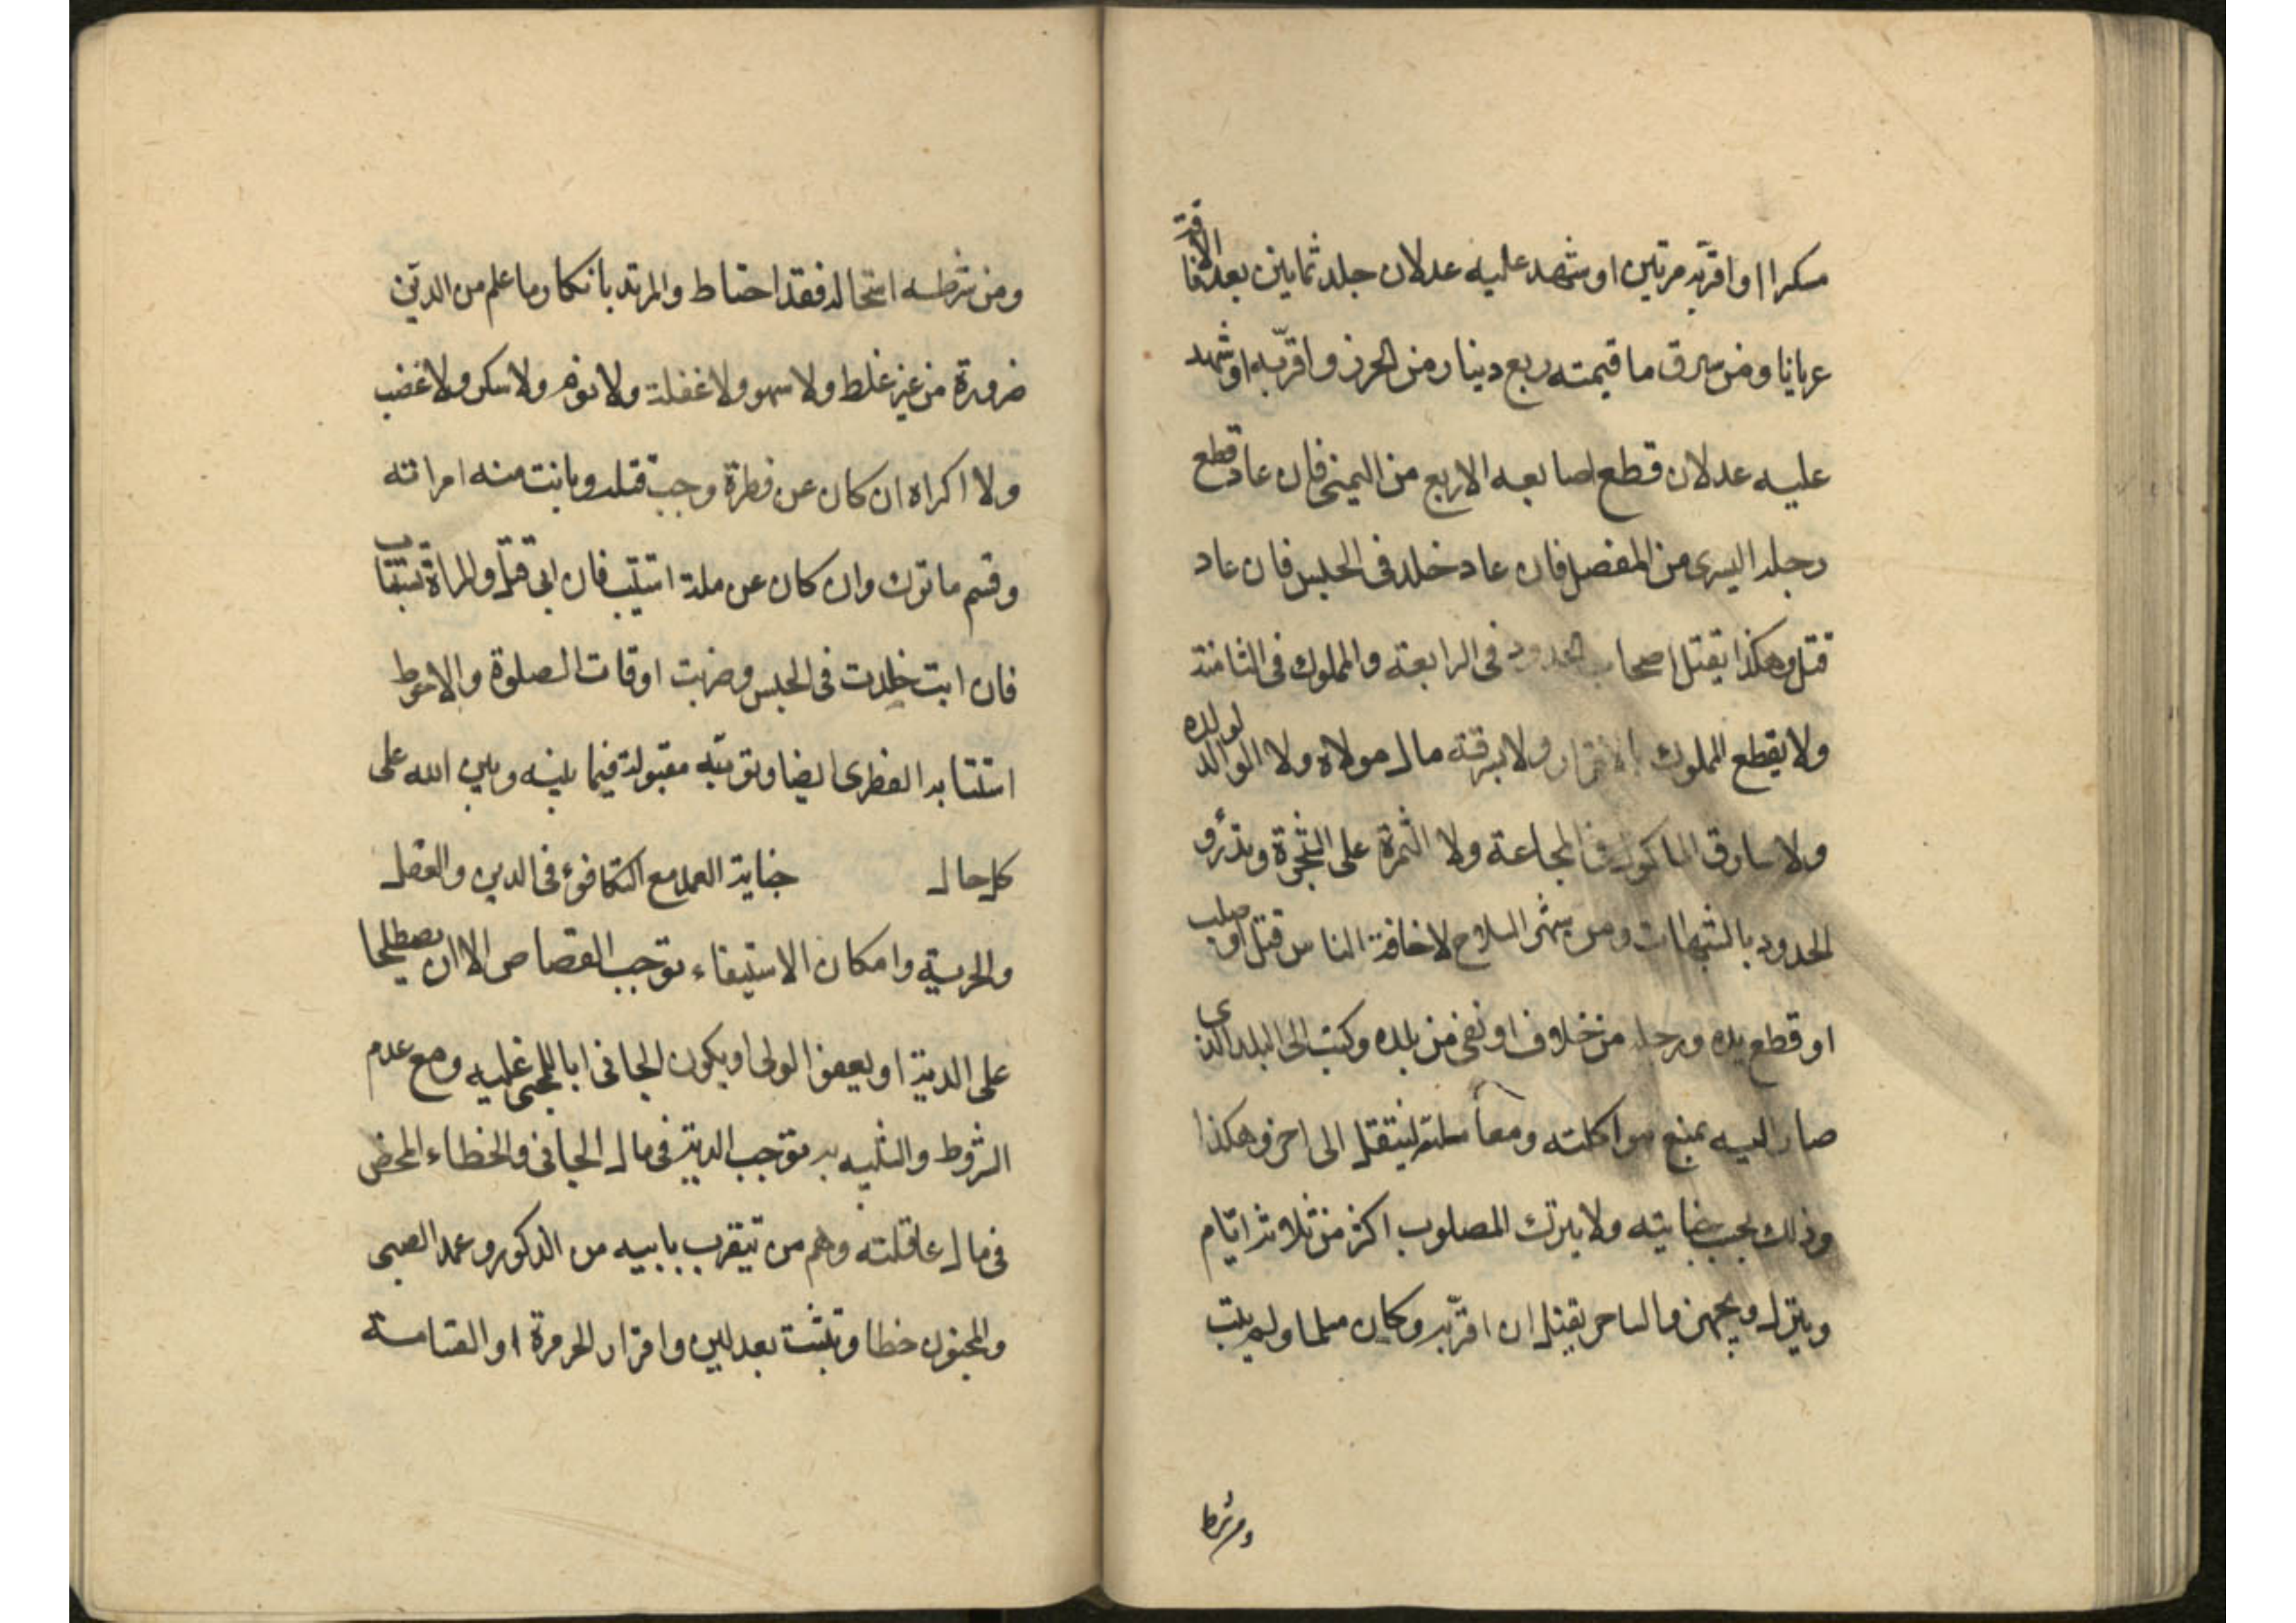 مسكرا او اقربه مرتين او شهد عليه عدلان جلد ثمانين بعد الافاقة
عريانا ومن سرق ما قيمته ربع دينار من الحرز واقرّ به او شهد
عليه عدلان قطع اصابعه الاربع من اليمنى فان عاد قطع
رجله اليسرى من المفصل فان عاد خلد فى الحبس فان عاد
قتل وهكذا يقتل اصحاب الحدود فى الرابعة والمملوك فى الثامنة
ولا يقطع المملوك بالاقرار ولا بسرقة مال مولاه ولا الوالد لولده
ولا سارق الماكول فى المجاعة ولا الثمرة على الشجرة وتدرؤ
الحدود بالشبهات ومن شهر السلاح لاخافة الناس قتل او صلب
او قطع يده ورجله من خلاف او نفى من بلده وكتب الى البلد الذى
صار اليه بمنع مواكلته ومعاملته لينتقل الى اخر وهكذا
وذلك بحسب جنايته ولا يترك المصلوب اكثر من ثلاثة ايّام
وينزل ويجهز والساحر يقتل ان اقرّ به وكان مسلما ولم يتب
ومن شرط
ومن شرط استحلاله فقد احتاط والمرتد بانكار ما علم من الدين
ضرورة من غير غلط ولا سهو ولا غفلة ولا نوم ولا سكر ولا غضب
ولا اكراه ان كان عن فطرة وجب قتله وبانت منه امراته
وقسم ما ترك وان كان عن ملة استتيب فان ابى قتل والمراة تستتاب
فان ابت خلدت فى الحبس وضربت اوقات الصلوة والاحوط
استتابة الفطرى ايضا وتوبته مقبولة فيما بينه وبين الله على
كل حال جناية العمد مع التكافوء فى الدين والعقل
والحرية وامكان الاستيفاء توجب القصاص الا ان يصطلحا
على الدية او يعفو الولى او يكون الجانى ابا للمجنى عليه ومع عدم
الشروط والشبيه به توجب الدية فى مال الجانى والخطاء المحض
فى مال عاقلته وهم من تيقرب بابيه من الذكور وعمد الصبى
والمجنون خطا وتثبت بعدلين واقرار الحر مرة او القسامة